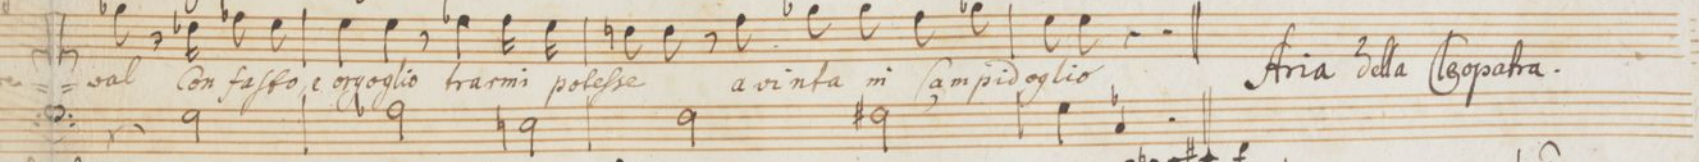 val con fasto, e orgoglio trarmi potesse avinta in Campidoglio Aria della Cleopatra.